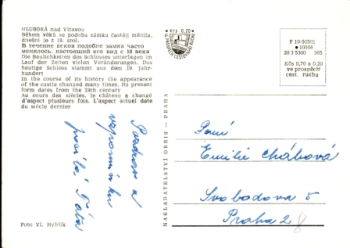 HLUBOKÁ nad Vltavou
Během věků se podoba zámku častěji měnila,
dnešní je z 19. stol.
В течение веков подобие замка часто
менялось, настоящий его вид с 19 века
Die Baulichkeiten des Schlosses unterlagen im
Lauf der Zeiten vielen Veränderungen. Das
heutige Schloss stammt aus dem 19. Jahr-
hundert
In the course of its history the appearance
of the castle changed many times. Its present
form dates from the 19th century
Au cours des siècles, le château a changé
d'aspect plusieurs fois. L'aspect actuel date
du siècle dernier
Pozdrav a
vzpomínku
posílá Táta
Foto Vl. Hyhlík
NAKLADATELSTVÍ ORBIS - PRAHA
Kčs 0,70 a 0,30
ve prospěch
cest. ruchu
Paní
Emilie Chábová
Svobodova 5
Praha 2